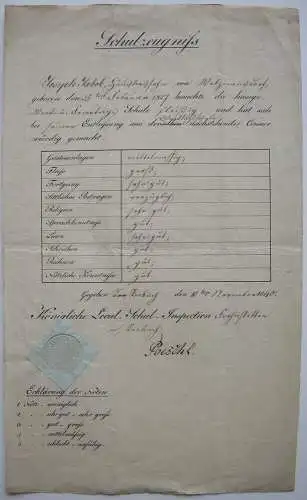 Schulzeugniß
Joseph Kobel, von
geboren den Februar 1827 besuchte die hiesige
Werk- u. Sonntags Schule fleißig und hat sich
bei seiner Entlassung aus derselben nachstehender Censur
würdig gemacht.
Geistesanlagen mittelmäßig,
Fleiß groß,
Fortgang sehr gut,
Sittliches Betragen vorzüglich,
Religion sehr gut,
gut,
Lesen sehr gut,
Schreiben gut,
Rechnen gut,
Nützliche Kenntnisse gut.
Gegeben den 18ten November 1840.
Königliche Local-Schul-Inspection
Poeschl.
Erklärung der Noten
1 Note vorzüglich
2 " sehr gut - sehr groß
3 " gut - groß
4 " mittelmäßig
5 " schlecht